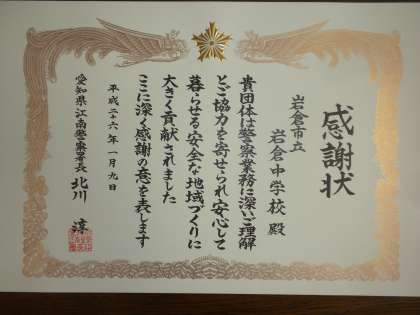 感謝状
岩倉市立
岩倉中学校 殿
貴団体は警察業務に深いご理解
とご協力を寄せられ安心して
暮らせる安全な地域づくりに
大きく貢献されました
ここに深く感謝の意を表します
平成二十六年一月九日
愛知県江南警察署長 北川 淳